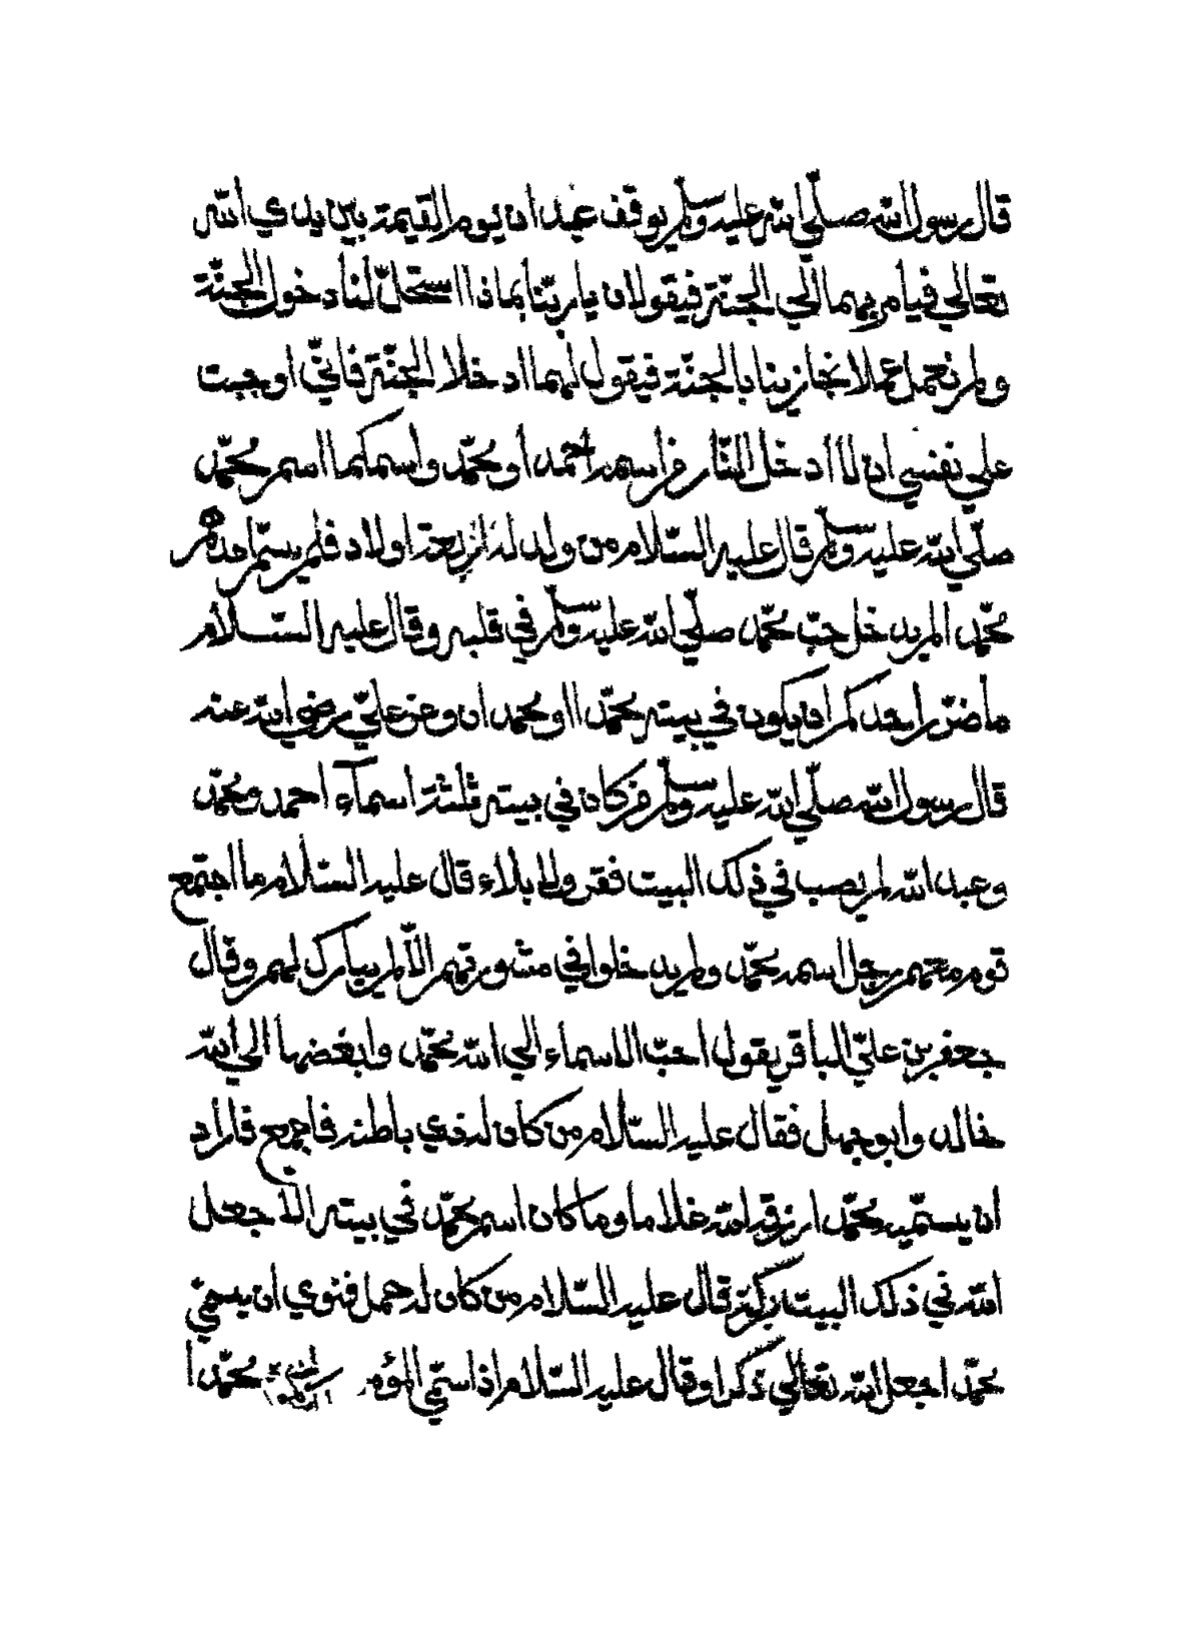 قال رسول الله صلّي الله عليه وسلّم يوقف عبدان يوم القيمة بين يدي الله
تعالي فيأمر بهما الّي الجنّة فيقولان يا ربّنا بما ذا استحلّ لنا دخول الجنّة
ولم نعمل عملا نجازينا با الجنّة فيقول لهما ادخلا الجنّة فانّي اوجبت
علي نفسي ان لا أدخل النّار من اسمه احمد أو محمّد واسمكما اسم محمّد
صلّي الله عليه وسلّم قال عليه السّلام من ولد له اربعة اولاد فلم يسمّ احدهم
محمّد المريد خل حبّ محمّد صلّي الله عليه وسلّم في قلبه وقال عليه السّلام
ما ضرّ احدكم ان يكون في بيته محمّد ااو محمدان وعن عليّ رضي الله عنه
قال رسول الله صلّي الله عليه وسلّم من كان في بيته ثلثة اسمآء احمد ومحمّد
وعبد الله لم يصب في ذلك البيت فقر ولا بلاء قال عليه السّلام ما اجتمع
قوم معهم رجل اسمه محمّد ولم يدخلوا في مشورتهم الاّ لم يبارك لهم وقال
جعفر بن عليّ الباقر يقول احبّ الاسماء الي الله محمّد وابغضها الي الله
خالد وابو جهل فقال عليه السّلام من كان له ذي باطنه فاجمع فاراد
ان يسمّيه محمّد ارزقه الله غلاما وما كان اسم محمّد في بيته الاّ جعل
الله في ذلك البيت بركة قال عليه السّلام من كان له حمل فنوي ان يسمّي
محمّد اجعل الله تعالي ذكرا وقال عليه السّلام اذا سمّي المؤمن محمّدا